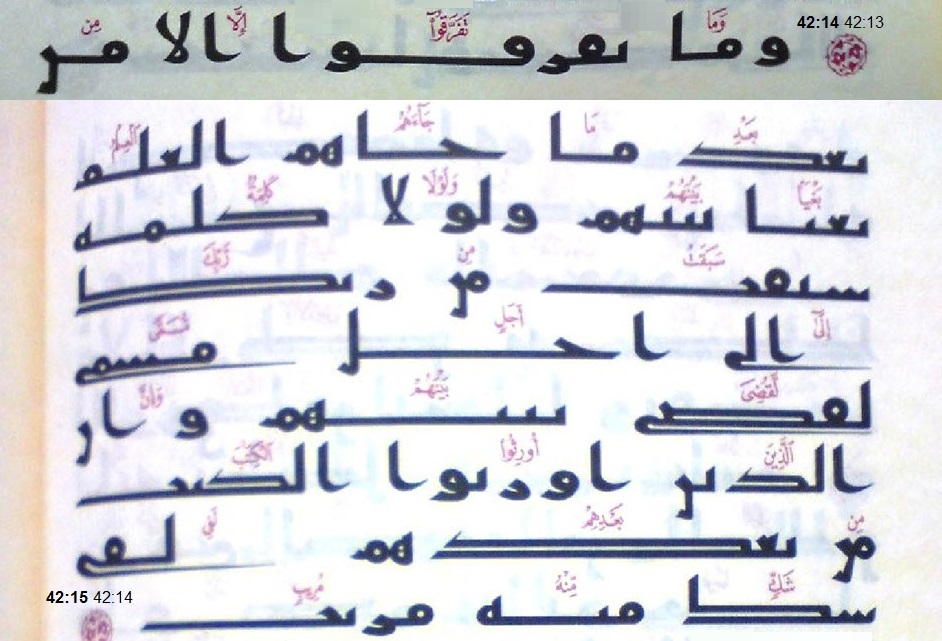 42:14 42:13
وَمَا تَفَرَّقُوٓا إِلَّا مِنۢ
وما تفرقوا الا من
بَعْدِ مَا جَآءَهُمُ ٱلْعِلْمُ
بعد ما جاهم العلم
بَغْيًۢا بَيْنَهُمْ وَلَوْلَا كَلِمَةٌ
بغيا بينهم ولولا كلمه
سَبَقَتْ مِن رَّبِّكَ
سبقت من ربك
إِلَىٰٓ أَجَلٍ مُّسَمًّى
الى اجل مسمى
لَّقُضِىَ بَيْنَهُمْ وَإِنَّ
لقضى بينهم وان
ٱلَّذِينَ أُورِثُوا ٱلْكِتَٰبَ
الذين اورثوا الكتب
مِنۢ بَعْدِهِمْ لَفِى
من بعدهم لفى
شَكٍّ مِّنْهُ مُرِيبٍ
شك منه مريب
42:15 42:14